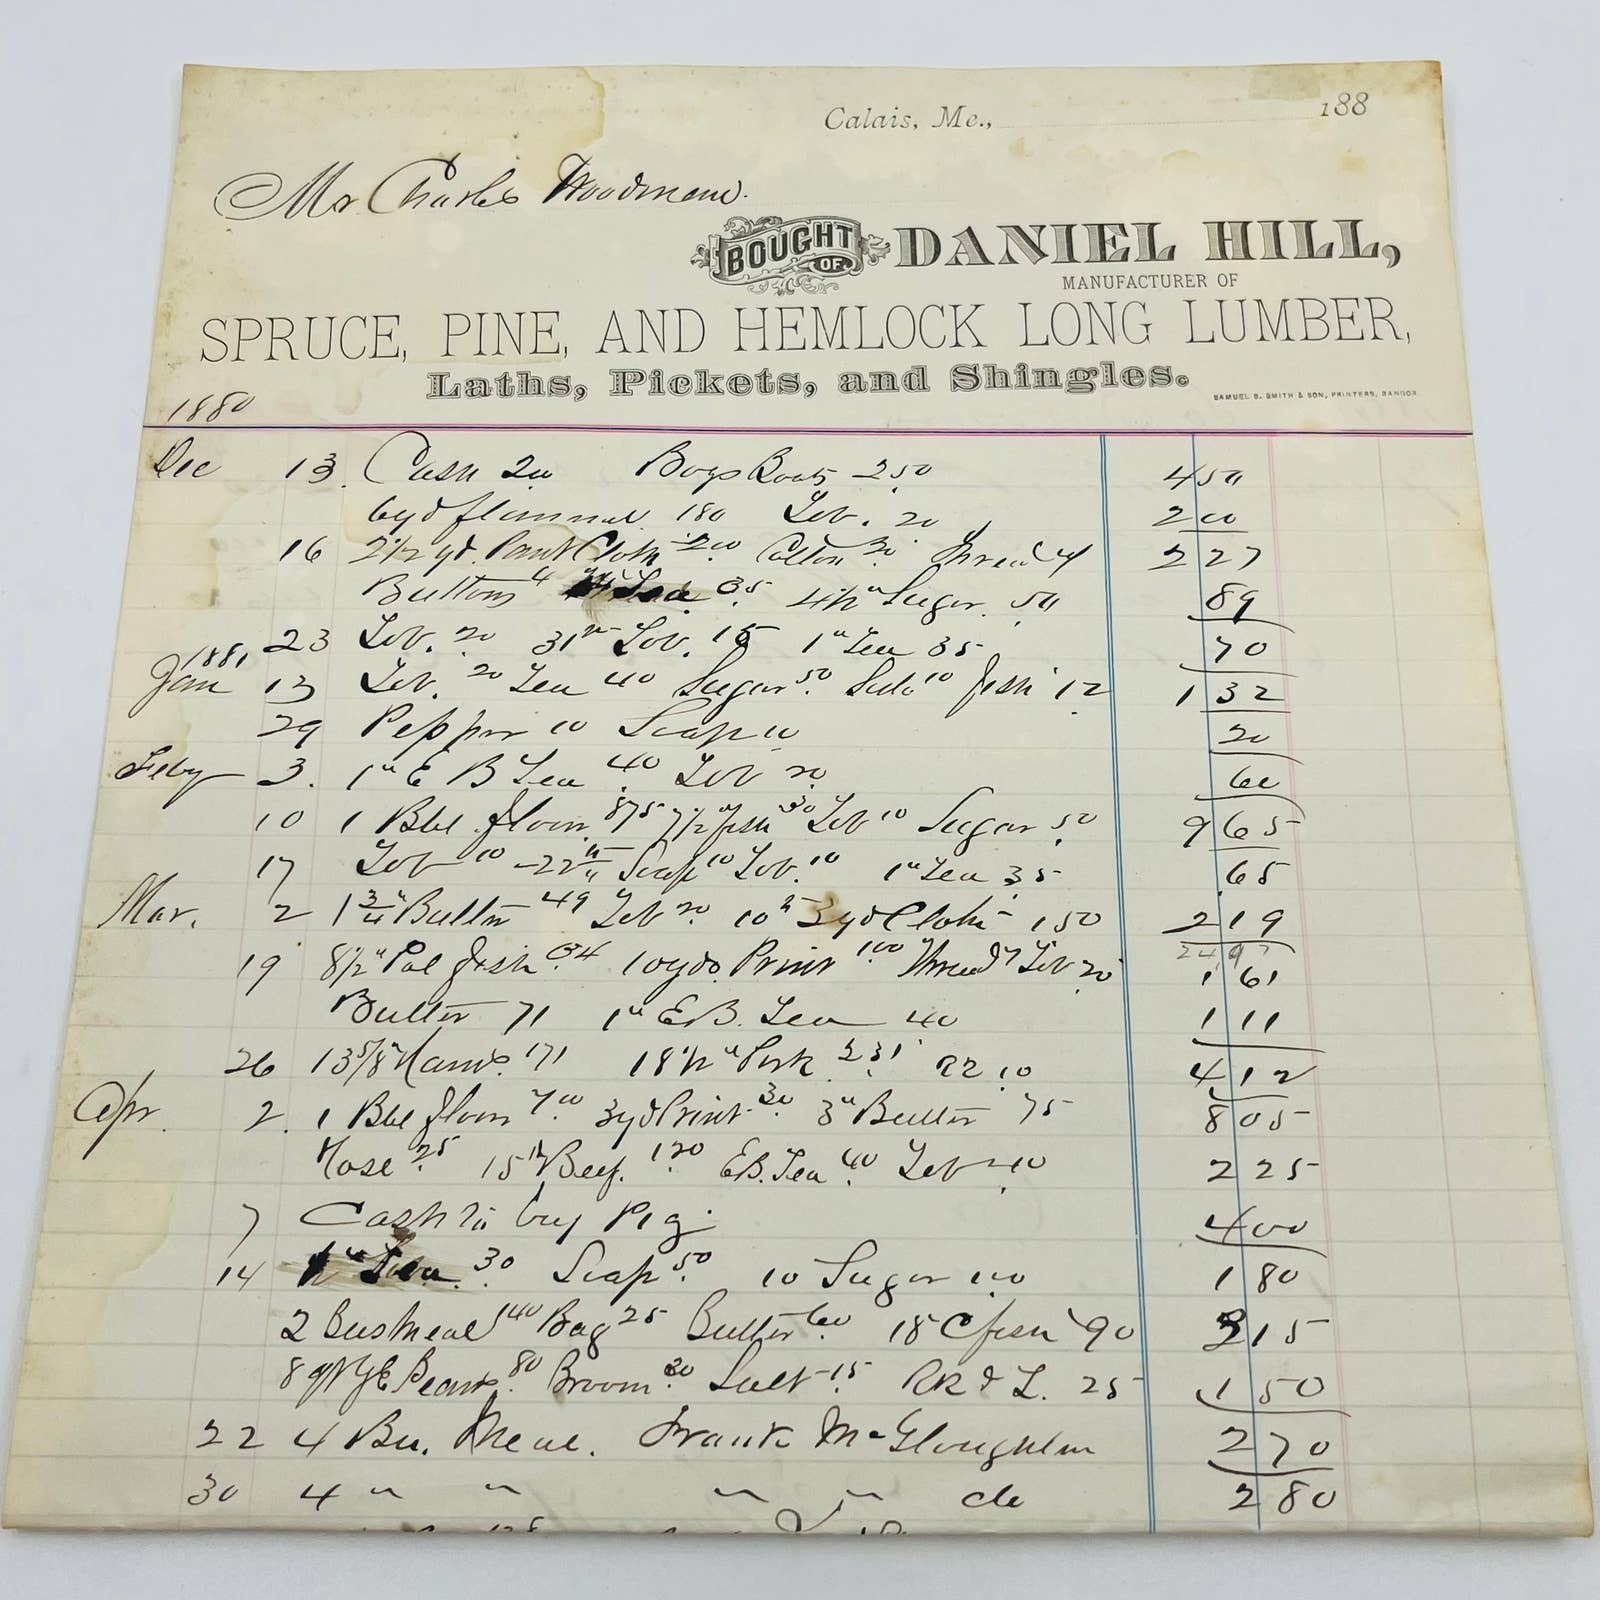 Calais, Me., 188
Mr Charles Woodman.
BOUGHT OF DANIEL HILL,
MANUFACTURER OF
SPRUCE, PINE, AND HEMLOCK LONG LUMBER,
Laths, Pickets, and Shingles.
SAMUEL S. SMITH & SON, PRINTERS, BANGOR.
1880
Dec 13. Cash 200 Boys Boots 250 450
6yd flannel 180 Tob. 20 200
16 2 1/2 yd. Pant Cloth 200 Cotton Thread 4 227
Buttons 4 Tea 35 4 1/2 " Sugar 50 89
23 Tob. 20 31st Tob. 15 1" Tea 35 70
1881
Jan 13 Tob. 20 Tea 40 Sugar 50 10 fish 12 132
29 Pepper 10 Soap 10 20
Feby 3. 1" E B Tea 40 Tob 20 60
10 1 Bbl flour 875 7 1/2 " fish 30 Tob 10 Sugar 50 965
17 Tob 10 22" Soap 10 Tob. 10 1" Tea 35 65
Mar. 2 1 3/4 " Butter 49 Tob 20 10th 3yd Cloth 150 219
249
19 8 1/2 " Pol fish 34 10yds Print 100 Thread 7 Tob 20 161
Butter 71 1" E.B. Tea 40 111
26 13 5/8 " Hams 171 18 1/2 " Pork 231 10 412
Apr. 2. 1 Bbl flour 700 3yd Print 30 3" Butter 75 805
Hose 25 15 " Beef. 120 E.B. Tea 40 Tob 40 225
7 Cash to buy Pig. 400
14 Tea 30 Soap 50 10 Sugar 100 180
2 Bus Meal 140 Bag 25 Butter 60 18 C fish 90 315
8 qt Y E Beans 80 Broom 30 Salt 15 25 150
22 4 Bu. Meal. Frank McGloughlin 270
30 4 " " " " do 280